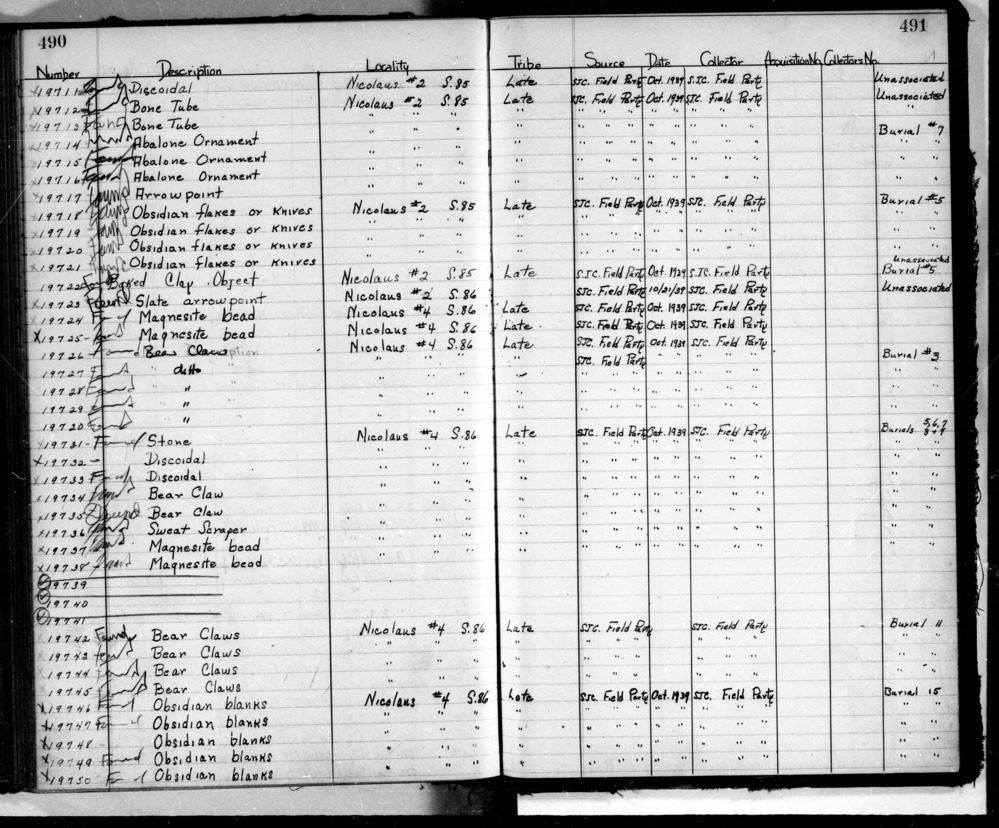 490
491
Number Description Locality Tribe Source Date Collector Acquisition No. Collectors No.
19711 Discoidal Nicolaus #2 S.85 Late SJC. Field Party Oct. 1939 S.J.C. Field Party Unassociated
19712 Bone Tube Nicolaus #2 S.85 Late SJC. Field Party Oct. 1939 SJC. Field Party Unassociated
19713 Bone Tube " " " " " " " " " " " "
19714 Abalone Ornament " " " " " " " " " " " Burial #7
19715 Abalone Ornament " " " " " " " " " " " " "
19716 Abalone Ornament " " " " " " " " " " " " "
19717 Arrowpoint " " " " " " " " " " " " "
19718 Found Obsidian flakes or knives Nicolaus #2 S.85 Late SJC. Field Party Oct. 1939 SJC. Field Party Burial #5
19719 Obsidian flakes or knives " " " " " " " " " " " " "
19720 Obsidian flakes or knives " " " " " " " " " " " " "
19721 Obsidian flakes or knives " " " " " " " " " " " " "
19722 Baked Clay Object Nicolaus #2 S.85 Late S.J.C. Field Party Oct. 1939 S.J.C. Field Party Unassociated Burial #5
19723 Found Slate arrowpoint Nicolaus #2 S.86 SJC. Field Party 10/21/39 SJC. Field Party Unassociated
19724 Magnesite bead Nicolaus #4 S.86 Late SJC. Field Party Oct. 1939 SJC. Field Party
X19725- Magnesite bead Nicolaus #4 S.86 Late SJC. Field Party Oct. 1939 SJC. Field Party
19726 Bear Claws Nicolaus #4 S.86 Late SJC. Field Party Oct. 1939 SJC. Field Party
19727 ditto " " " " SJC. Field Party " " " " " Burial #3
19728 " " " " " " " " " " " " " "
19729 " " " " " " " " " " " " " "
19730 " " " " " " " " " " " " " "
X19731- Found Stone Nicolaus #4 S.86 Late SJC. Field Party Oct. 1939 SJC. Field Party Burials 5,6,7 8+9
X19732- Discoidal " " " " " " " " " " " "
X19733 Found Discoidal " " " " " " " " " " " "
19734 Bear Claw " " " " " " " " " " " "
19735 Found Bear Claw " " " " " " " " " " " "
X19736 Sweat Scraper " " " " " " " " " " " "
X19737 Magnesite bead " " " " " " " " " " " "
X19738 Found Magnesite bead " " " " " " " " " " " "
19739
19740
19741
19742 Found Bear Claws Nicolaus #4 S.86 Late SJC. Field Party SJC. Field Party Burial 11
19743 Bear Claws " " " " " " " " " " " "
19744 Bear Claws " " " " " " " " " " " "
19745 Bear Claws " " " " " " " " " " " "
X19746 Obsidian blanks Nicolaus #4 S.86 Late SJC. Field Party Oct. 1939 SJC. Field Party Burial 15
X19747 Obsidian blanks " " " " " " " " " " " "
X19748- Obsidian blanks " " " " " " " " " " " "
X19749 Found Obsidian blanks " " " " " " " " " " " "
X19750 Obsidian blanks " " " " " " " " " " " "